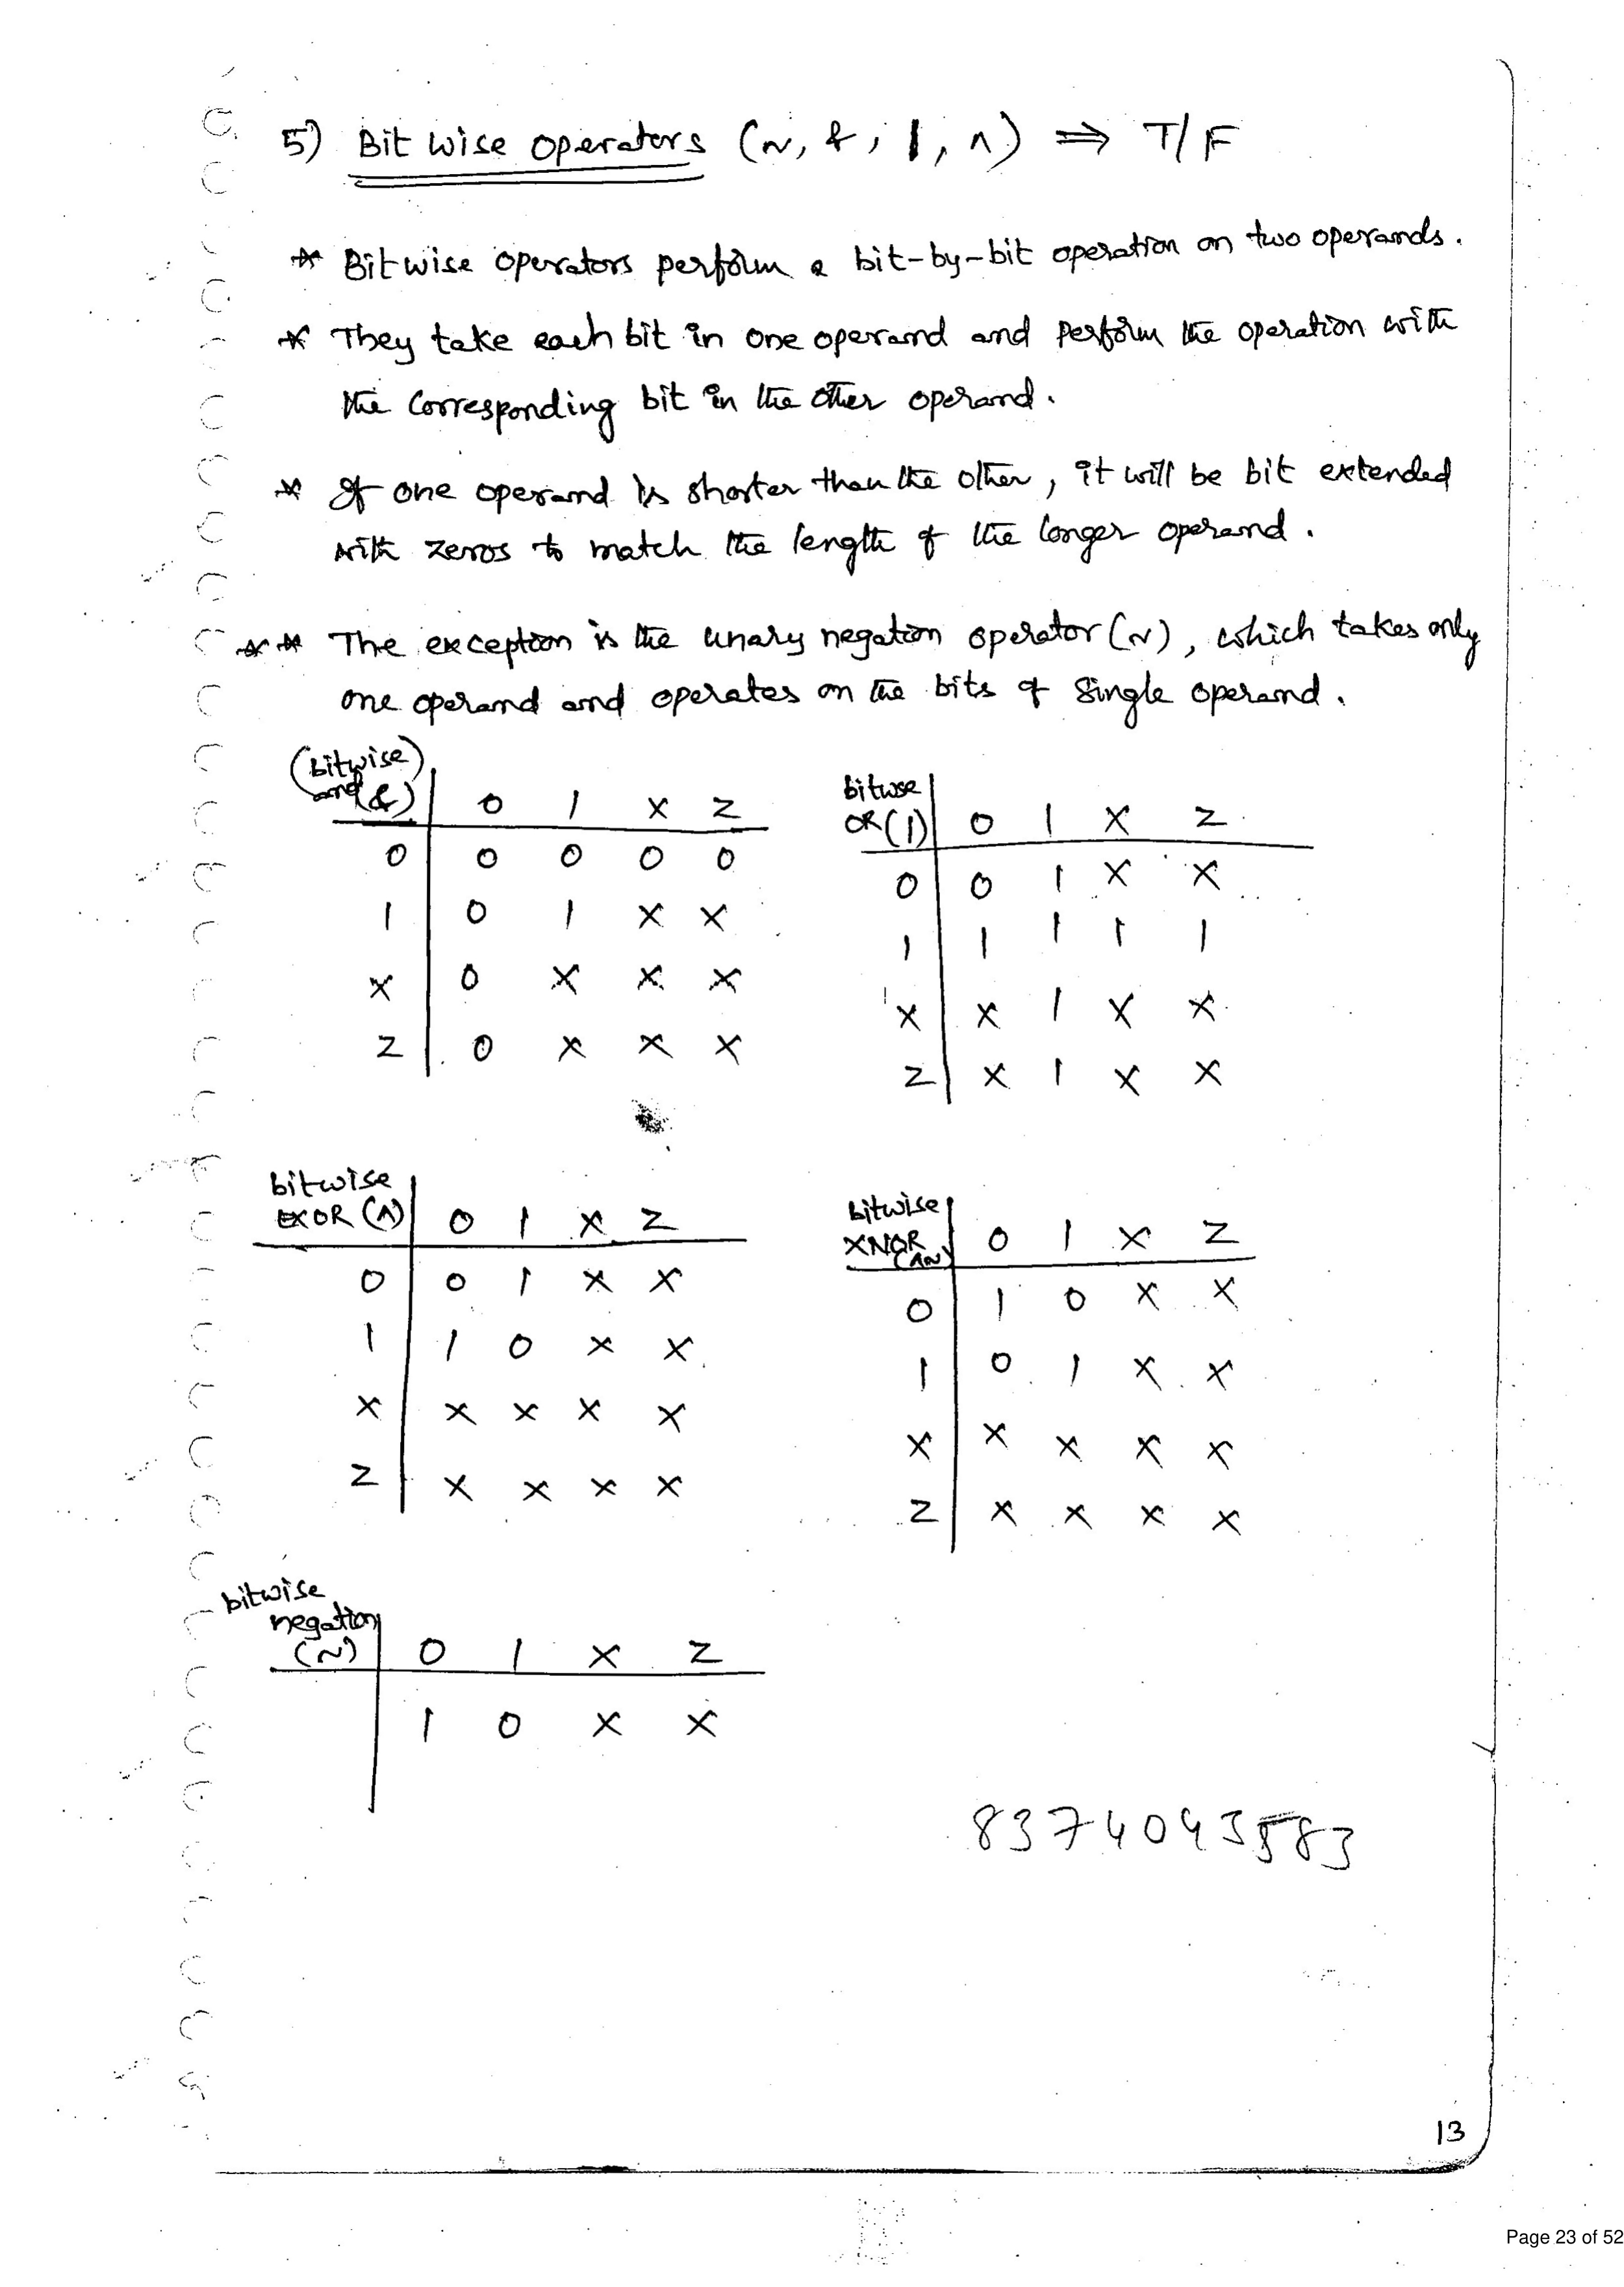 5) Bit wise operators (~, &, |, ^) ⇒ T/F
* Bitwise operators perform a bit-by-bit operation on two operands.
* They take each bit in one operand and perform the operation with
the corresponding bit in the other operand.
* If one operand is shorter than the other, it will be bit extended
with zeros to match the length of the longer operand.
** The exception is the unary negation operator (~), which takes only
one operand and operates on the bits of single operand.
(bitwise)
and (&) 0 1 x z
0 0 0 0 0
1 0 1 x x
x 0 x x x
z 0 x x x
bitwse
OR (|) 0 1 x z
0 0 1 x x
1 1 1 1 1
x x 1 x x
z x 1 x x
bitwise
EXOR (^) 0 1 x z
0 0 1 x x
1 1 0 x x
x x x x x
z x x x x
bitwise
XNOR (^~) 0 1 x z
0 1 0 x x
1 0 1 x x
x x x x x
z x x x x
bitwise
negation
(~) 0 1 x z
1 0 x x
8374043583
13
Page 23 of 52